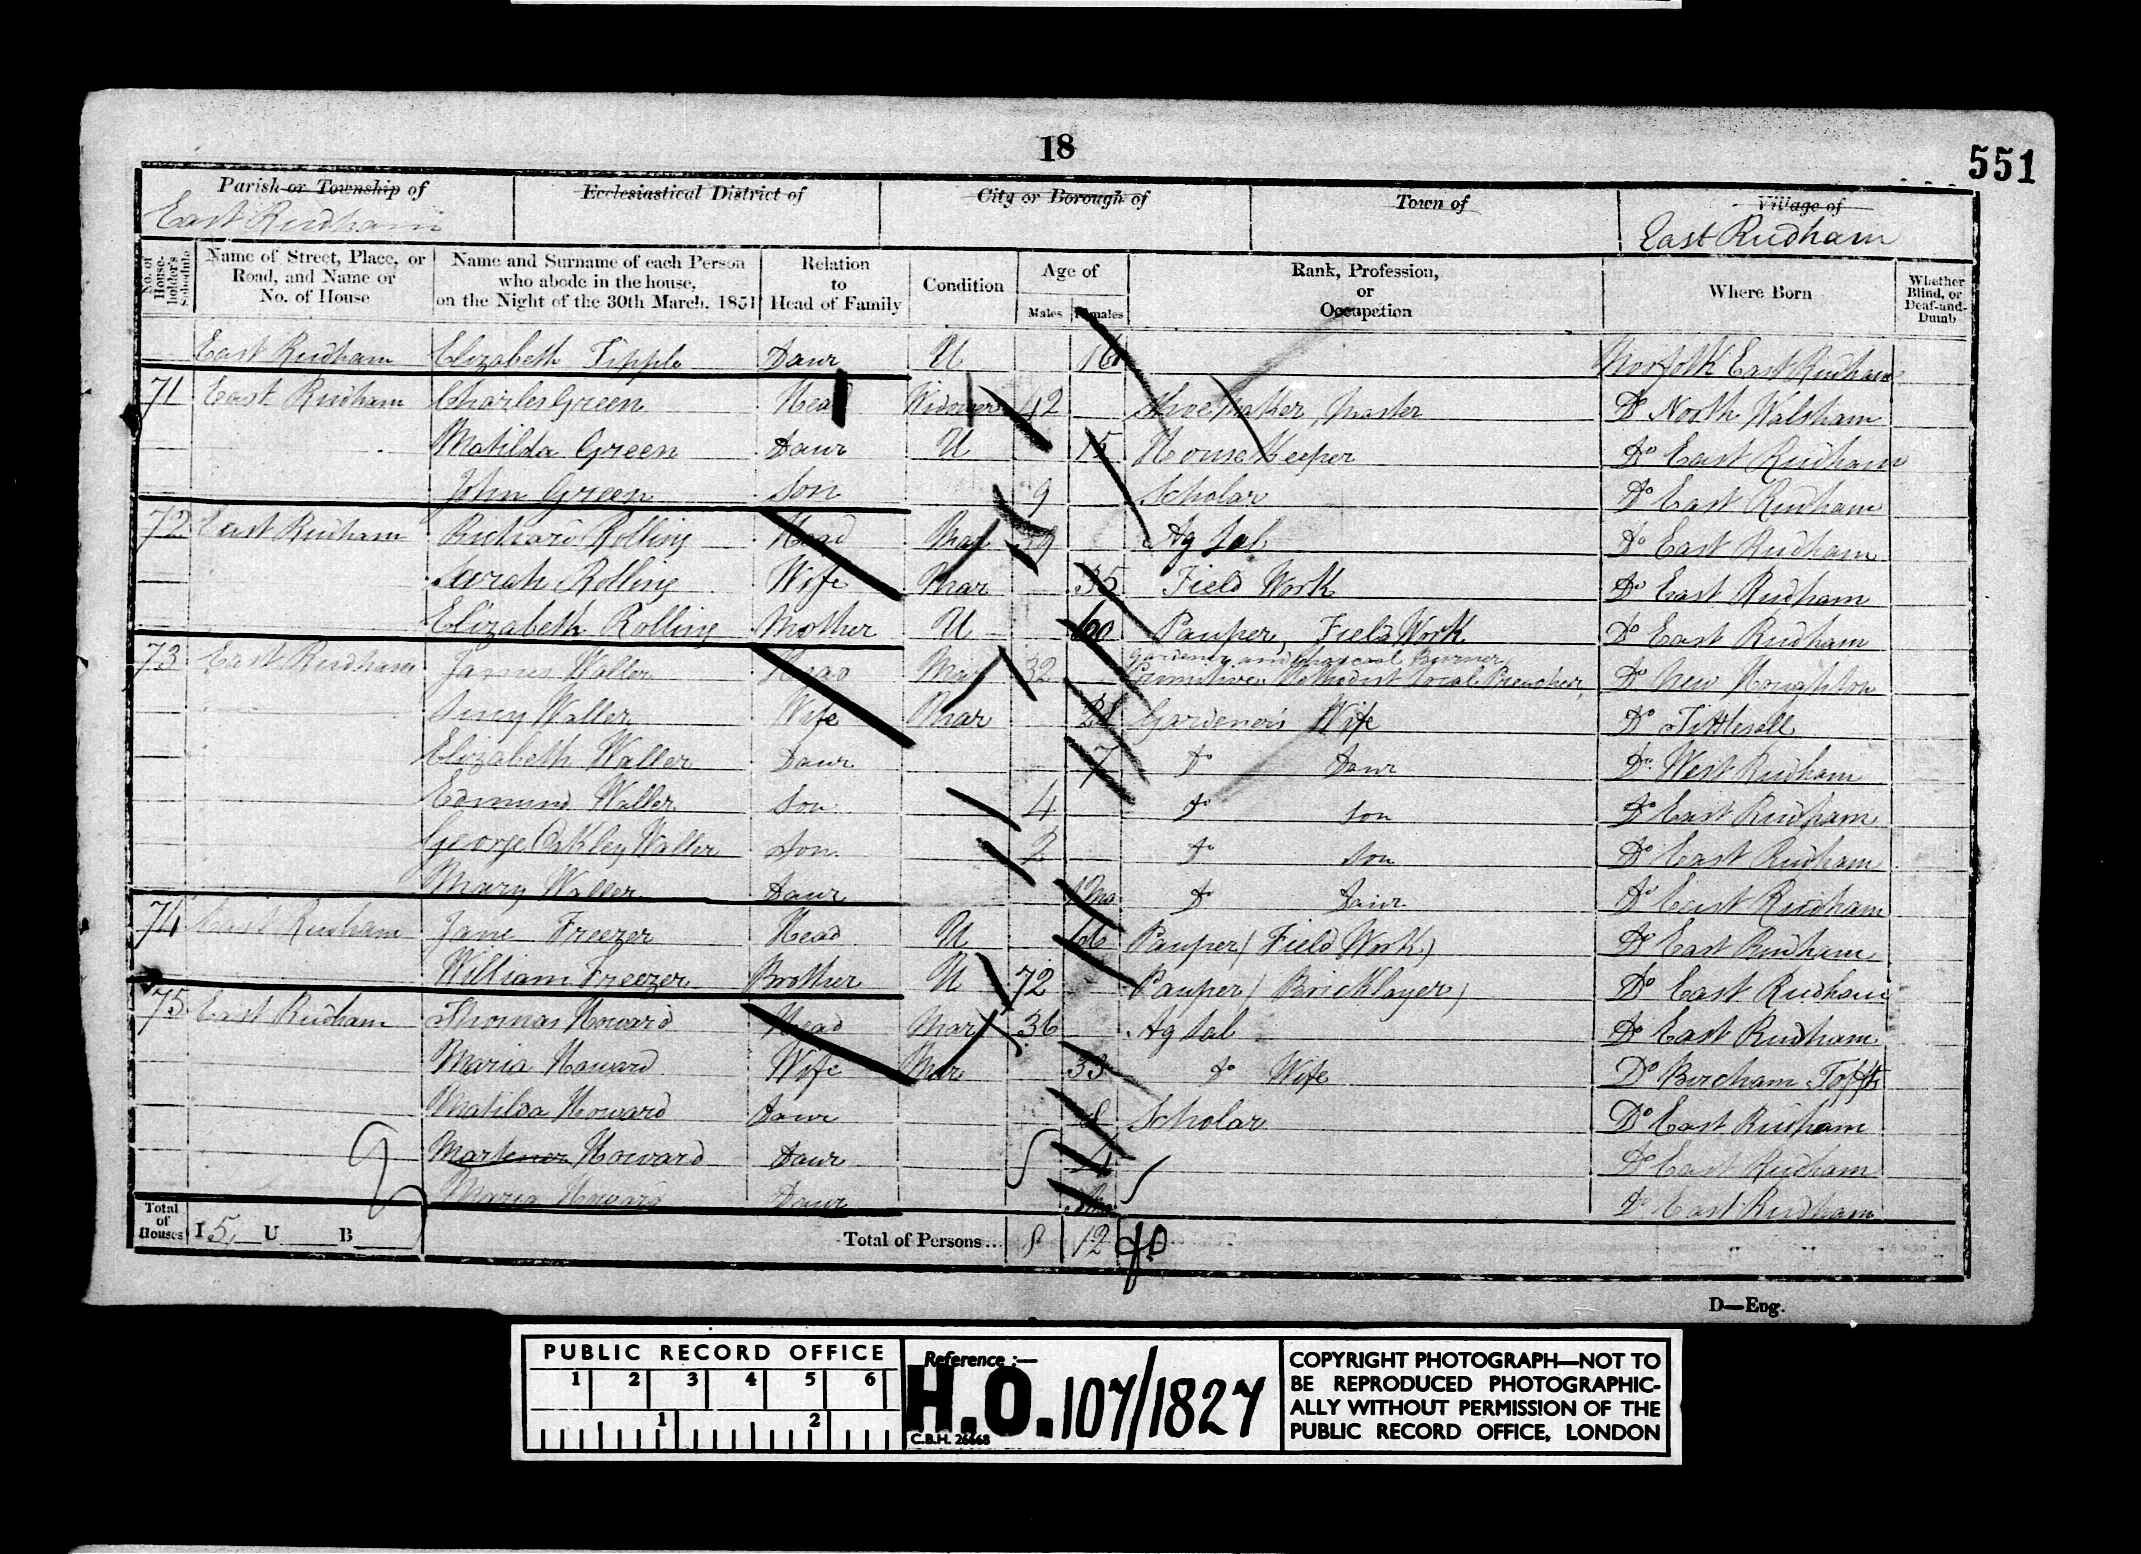 18
551
Parish or Township of
East Rudham
Ecclesiastical District of
City or Borough of
Town of
Village of
East Rudham
No. of House-holder's Schedule
Name of Street, Place, or Road, and Name or No. of House
Name and Surname of each Person who abode in the house, on the Night of the 30th March, 1851
Relation to Head of Family
Condition
Age of
Males Females
Rank, Profession, or Occupation
Where Born
Whether Blind, or Deaf-and-Dumb
East Rudham Elizabeth Tipple Daur U 16 Norfolk East Rudham
71 East Rudham Charles Green Head Widower 42 Shoemaker, Master Do North Walsham
Matilda Green Daur U 15 House Keeper Do East Rudham
John Green Son 9 Scholar Do East Rudham
72 East Rudham Richard Rolling Head Mar Ag Lab Do East Rudham
Sarah Rolling Wife Mar 35 Field Work Do East Rudham
Elizabeth Rolling Mother U 60 Pauper, Field Work Do East Rudham
73 East Rudham James Waller Head Mar 32 Gardener and Charcoal Burner Primitive Methodist Local Preacher, Do New Houghton
Lucy Waller Wife Mar 28 Gardener's Wife Do Tittlesall
Elizabeth Waller Daur 7 Do Daur Do West Rudham
Edmund Waller Son 4 Do Son Do East Rudham
George Oakley Waller Son 2 Do Son Do East Rudham
Mary Waller Daur 1 Mo Do Daur Do East Rudham
74 East Rudham Jane Freezer Head U 66 Pauper (Field Work) Do East Rudham
William Freezer Brother U 72 Pauper (Bricklayer) Do East Rudham
75 East Rudham Thomas Howard Head Mar 36 Ag Lab Do East Rudham
Maria Howard Wife Mar 33 Do Wife Do Bircham Tofts
Matilda Howard Daur 8 Scholar Do East Rudham
Howard Daur 4 Do East Rudham
Maria Howard Daur Mo Do East Rudham
Total of Houses I 5 U B
Total of Persons... 8 12
D—Eng.
PUBLIC RECORD OFFICE
1 2 3 4 5 6
1 2
Reference :—
H.O. 107/1827
C.B.H. 26668
COPYRIGHT PHOTOGRAPH—NOT TO
BE REPRODUCED PHOTOGRAPHIC-
ALLY WITHOUT PERMISSION OF THE
PUBLIC RECORD OFFICE, LONDON